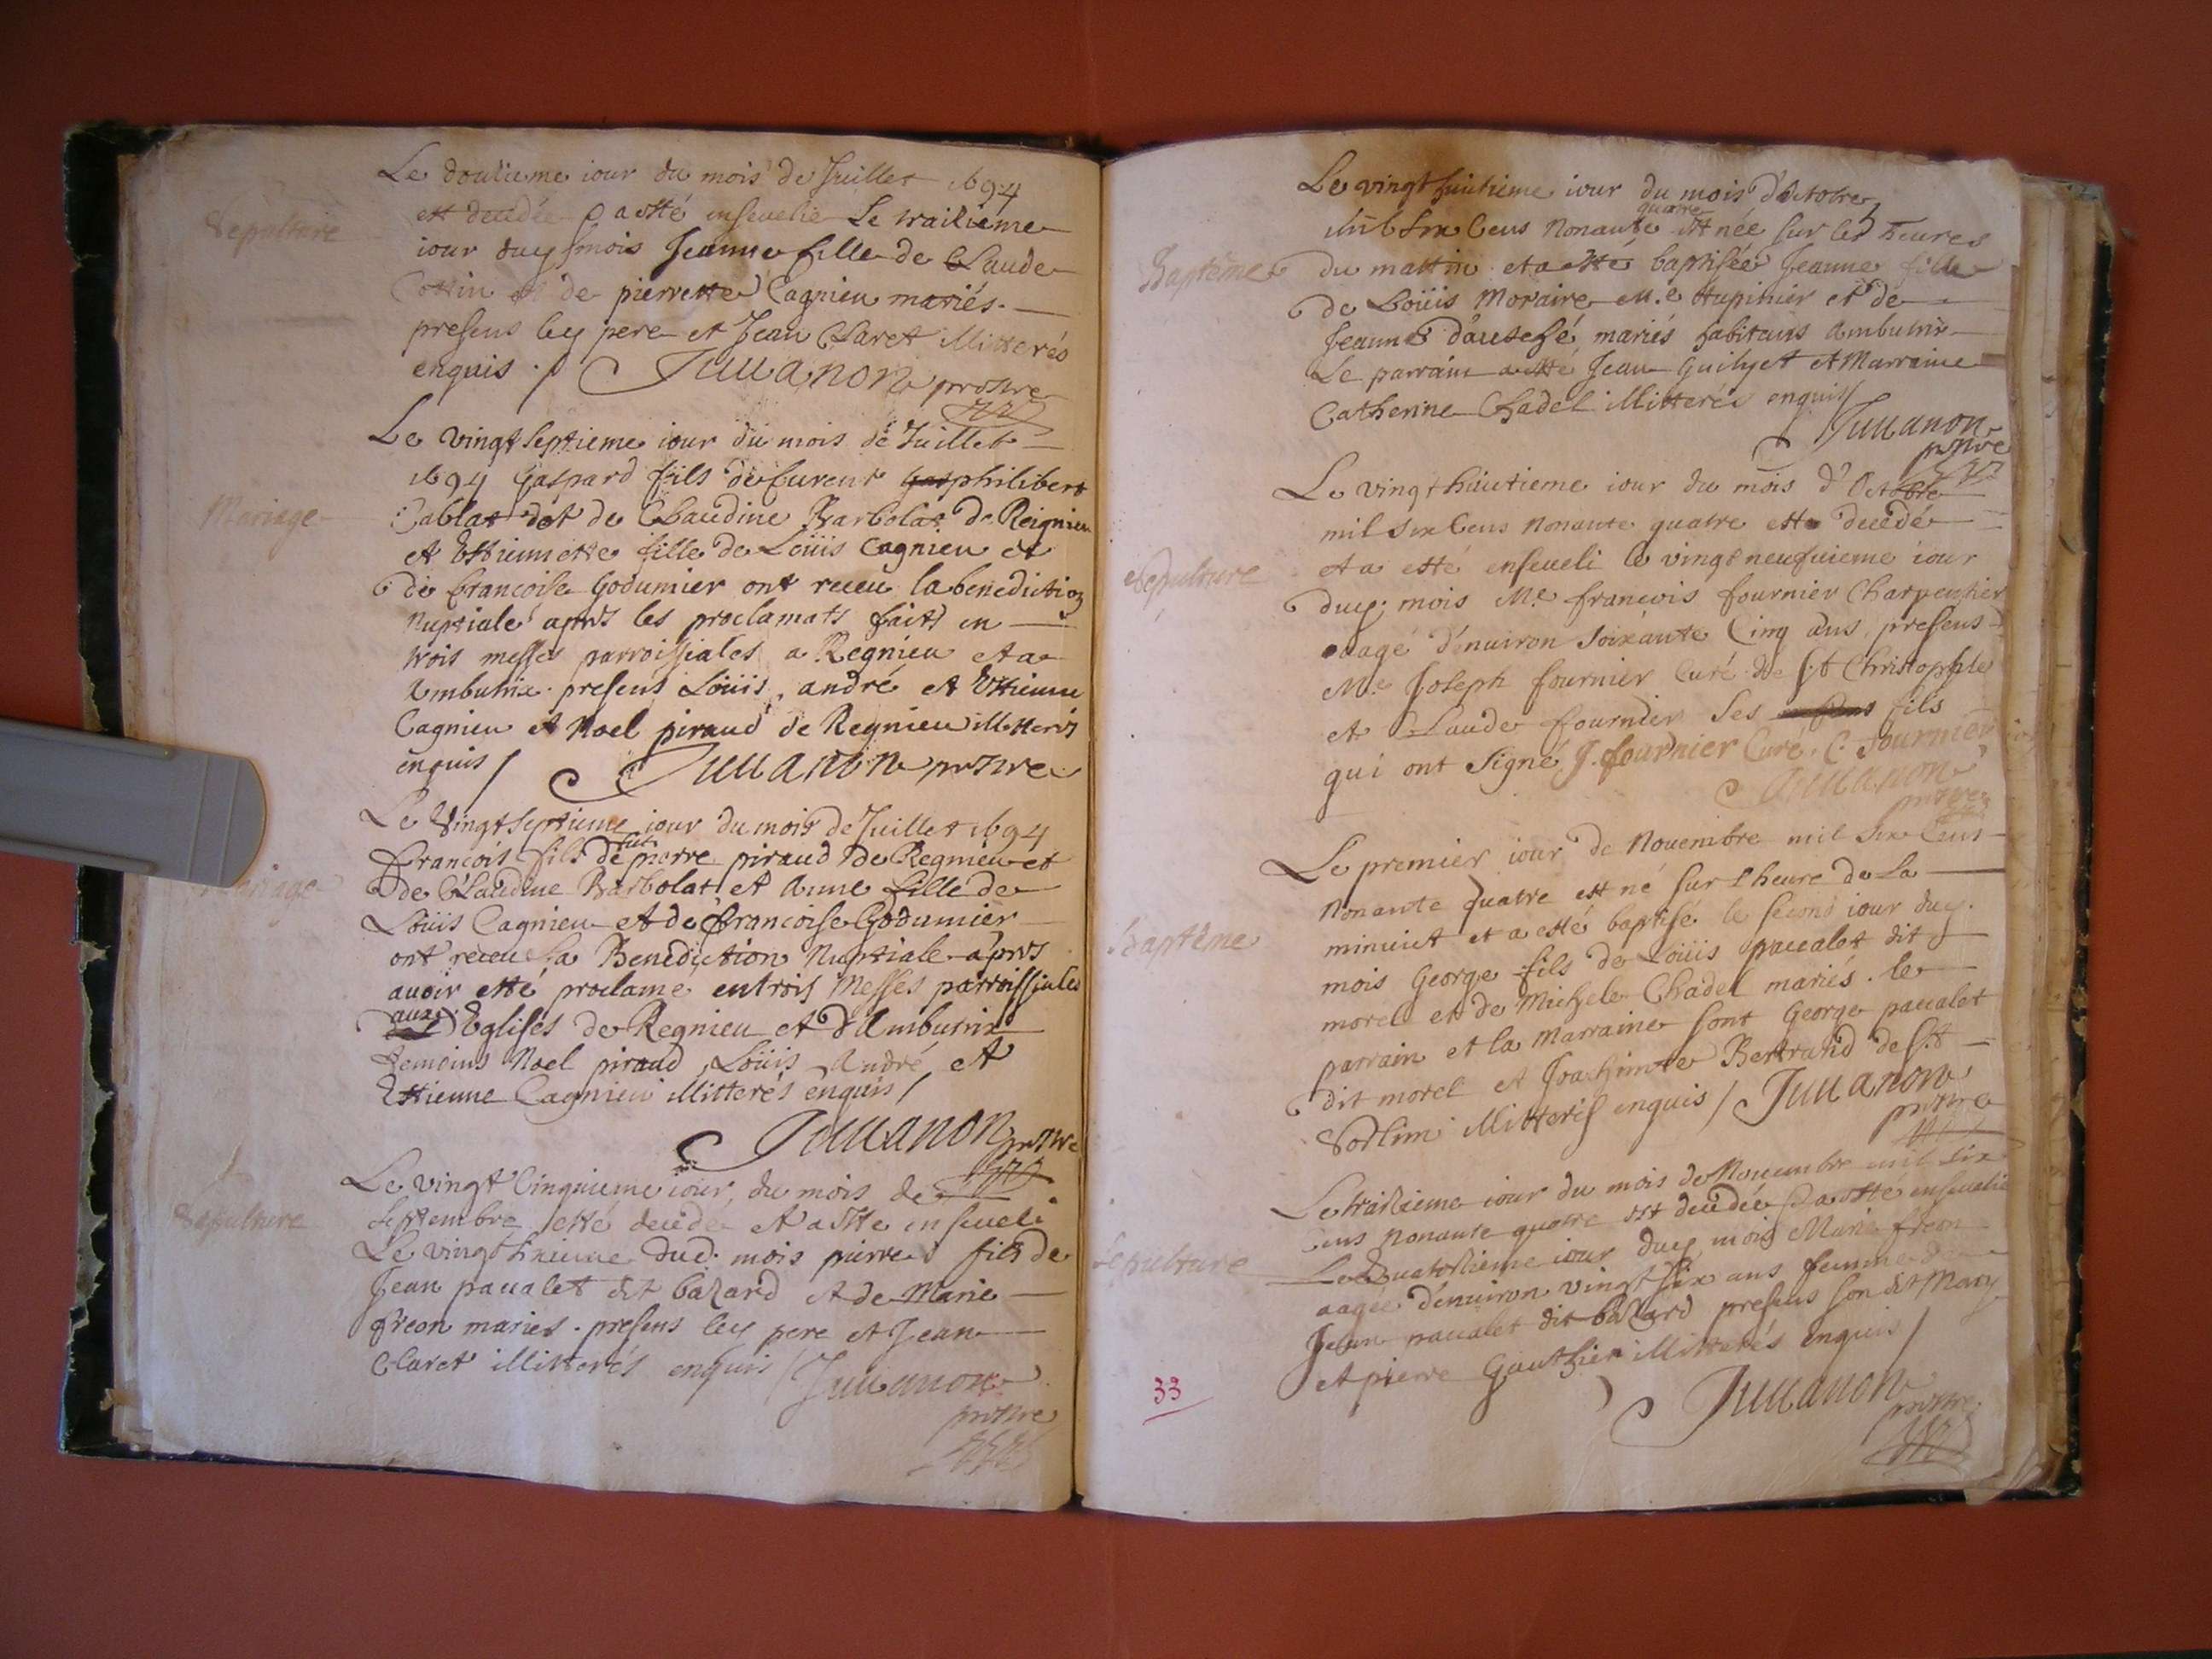 Sepulture
Le douzieme iour du mois de Juillet 1694
est decedée a esté enseuelie Le traizieme
iour duy mois Jeanne fille de Claude
Cottin et de pierrette Cagnieu mariés.
presens ley pere et Jean Claret illitterés
enquis. / Juuanon prstre
Mariage
Le vingt septieme iour du mois de Juillet
1694 Gaspard fils de furent philibert
Cablat dit de Claudine Barbolat de Reignieu
et Estiennette fille de Loüis Cagnieu et
de francoise Godumier ont receu la benediction
Nuptiale aprés les proclamats faits en
trois messes parroissiales a Regnieu et a
Ambutrix. presens Loüis, andré et Estienne
Cagnieu et Noel piraud de Regnieu illitterés
enquis / Juuanon prstre
Mariage
Le Vingt septieme iour du mois de Juillet 1694
francois fils de fut pierre piraud de Regnieu et
de Claudine Barbolat et Anne fille de
Loüis Cagnieu et de francoise Godumier
ont receu La Benediction Nuptiale aprés
auoir esté proclame en trois Messes parroissiales
aux Eglises de Regnieu et d'Ambutrix
temoins Noel piraud, Loüis André et
Estienne Cagnieu illitterés enquis /
Juuanon prstre
Sepulture
Le vingt Cinquieme iour du mois de
Septembre esté decedé et a esté enseueli
Le vingt sixieme dud. mois pierre fils de
Jean paualet dit bazard et de Marie
freon mariés. presens ley pere et Jean
Claret illitterés enquis / Juuanon
prstre
Baptême
Le vingt huitieme iour du mois d'Octobre
mil six Cens Nonante quatre est née sur les heures
du mattin et a esté baptisée Jeanne fille
de Loüis Moraire M.e tupinier et de
Jeanne mariés habitans Ambutrix
Le parrain a esté Jean Guilyet et Marraine
Catherine Chadel illitterés enquis /
Juuanon
prstre
Sepulture
Le vingt huitieme iour du mois d'Octobre
mil six Cens Nonante quatre est decedé
et a esté enseueli le vingt neufuieme iour
duy. mois M.e francois fournier Charpentier
aagé d'enuiron soixante Cinq ans, presens
M.e Joseph fournier Curé de S.t Christophle
et Claude fournier ses fils
qui ont signé J. fournier Curé. C. fournier
Juuanon
prstre
Baptême
Le premier iour de Nouembre mil six Cens
Nonante quatre est né sur l'heure de La
minuict et a esté baptisé le second iour duy.
mois George fils de Loüis paualet dit
morel et de Michele Chadel mariés. le
parrain et la Marraine sont George paualet
dit morel et Joachimte Bertrand de S.t
Sorlin illitterés enquis / Juuanon
prstre
Sepulture
Le traizieme iour du mois de Nouembre mil six
Cens Nonante quatre est decedée a esté enseuelie
Le Quatorzieme iour duy mois Marie freon
aagée d'enuiron vingt six ans femme de
Jean paualet dit bazard presens son dit Mary
et pierre Gauthier illitterés enquis /
Juuanon
prstre
33